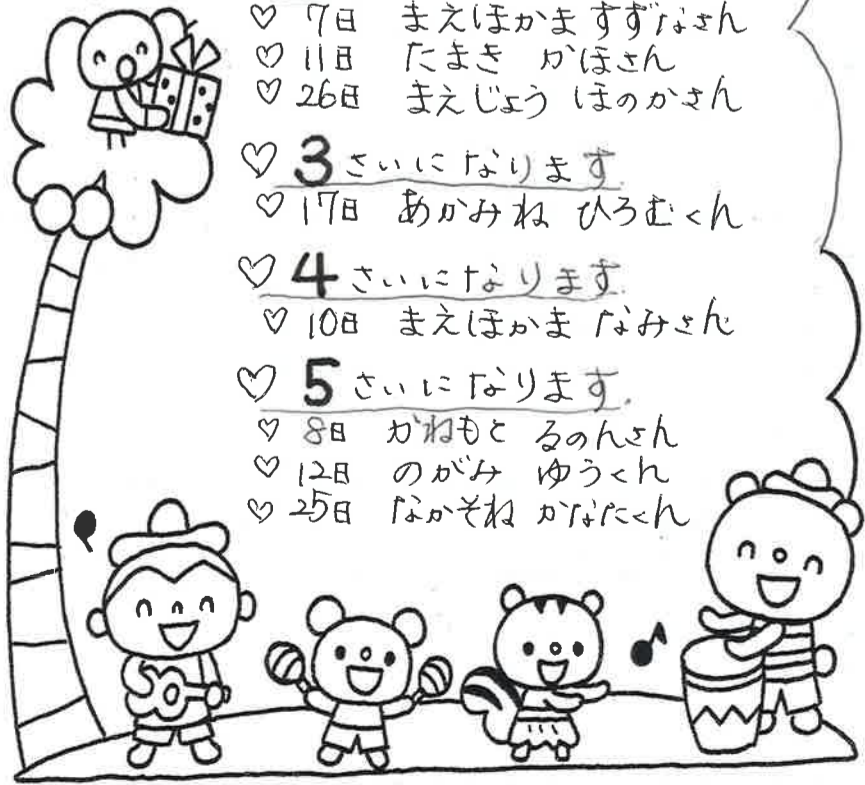 ♡ 7日 まえほかま すずなさん
♡ 11日 たまき かほさん
♡ 26日 まえじょう ほのかさん
♡ 3さいになります
♡ 17日 あかみね ひろむくん
♡ 4さいになります
♡ 10日 まえほかま なみさん
♡ 5さいになります
♡ 8日 かねもと るのんさん
♡ 12日 のがみ ゆうくん
♡ 25日 なかそね かなたくん